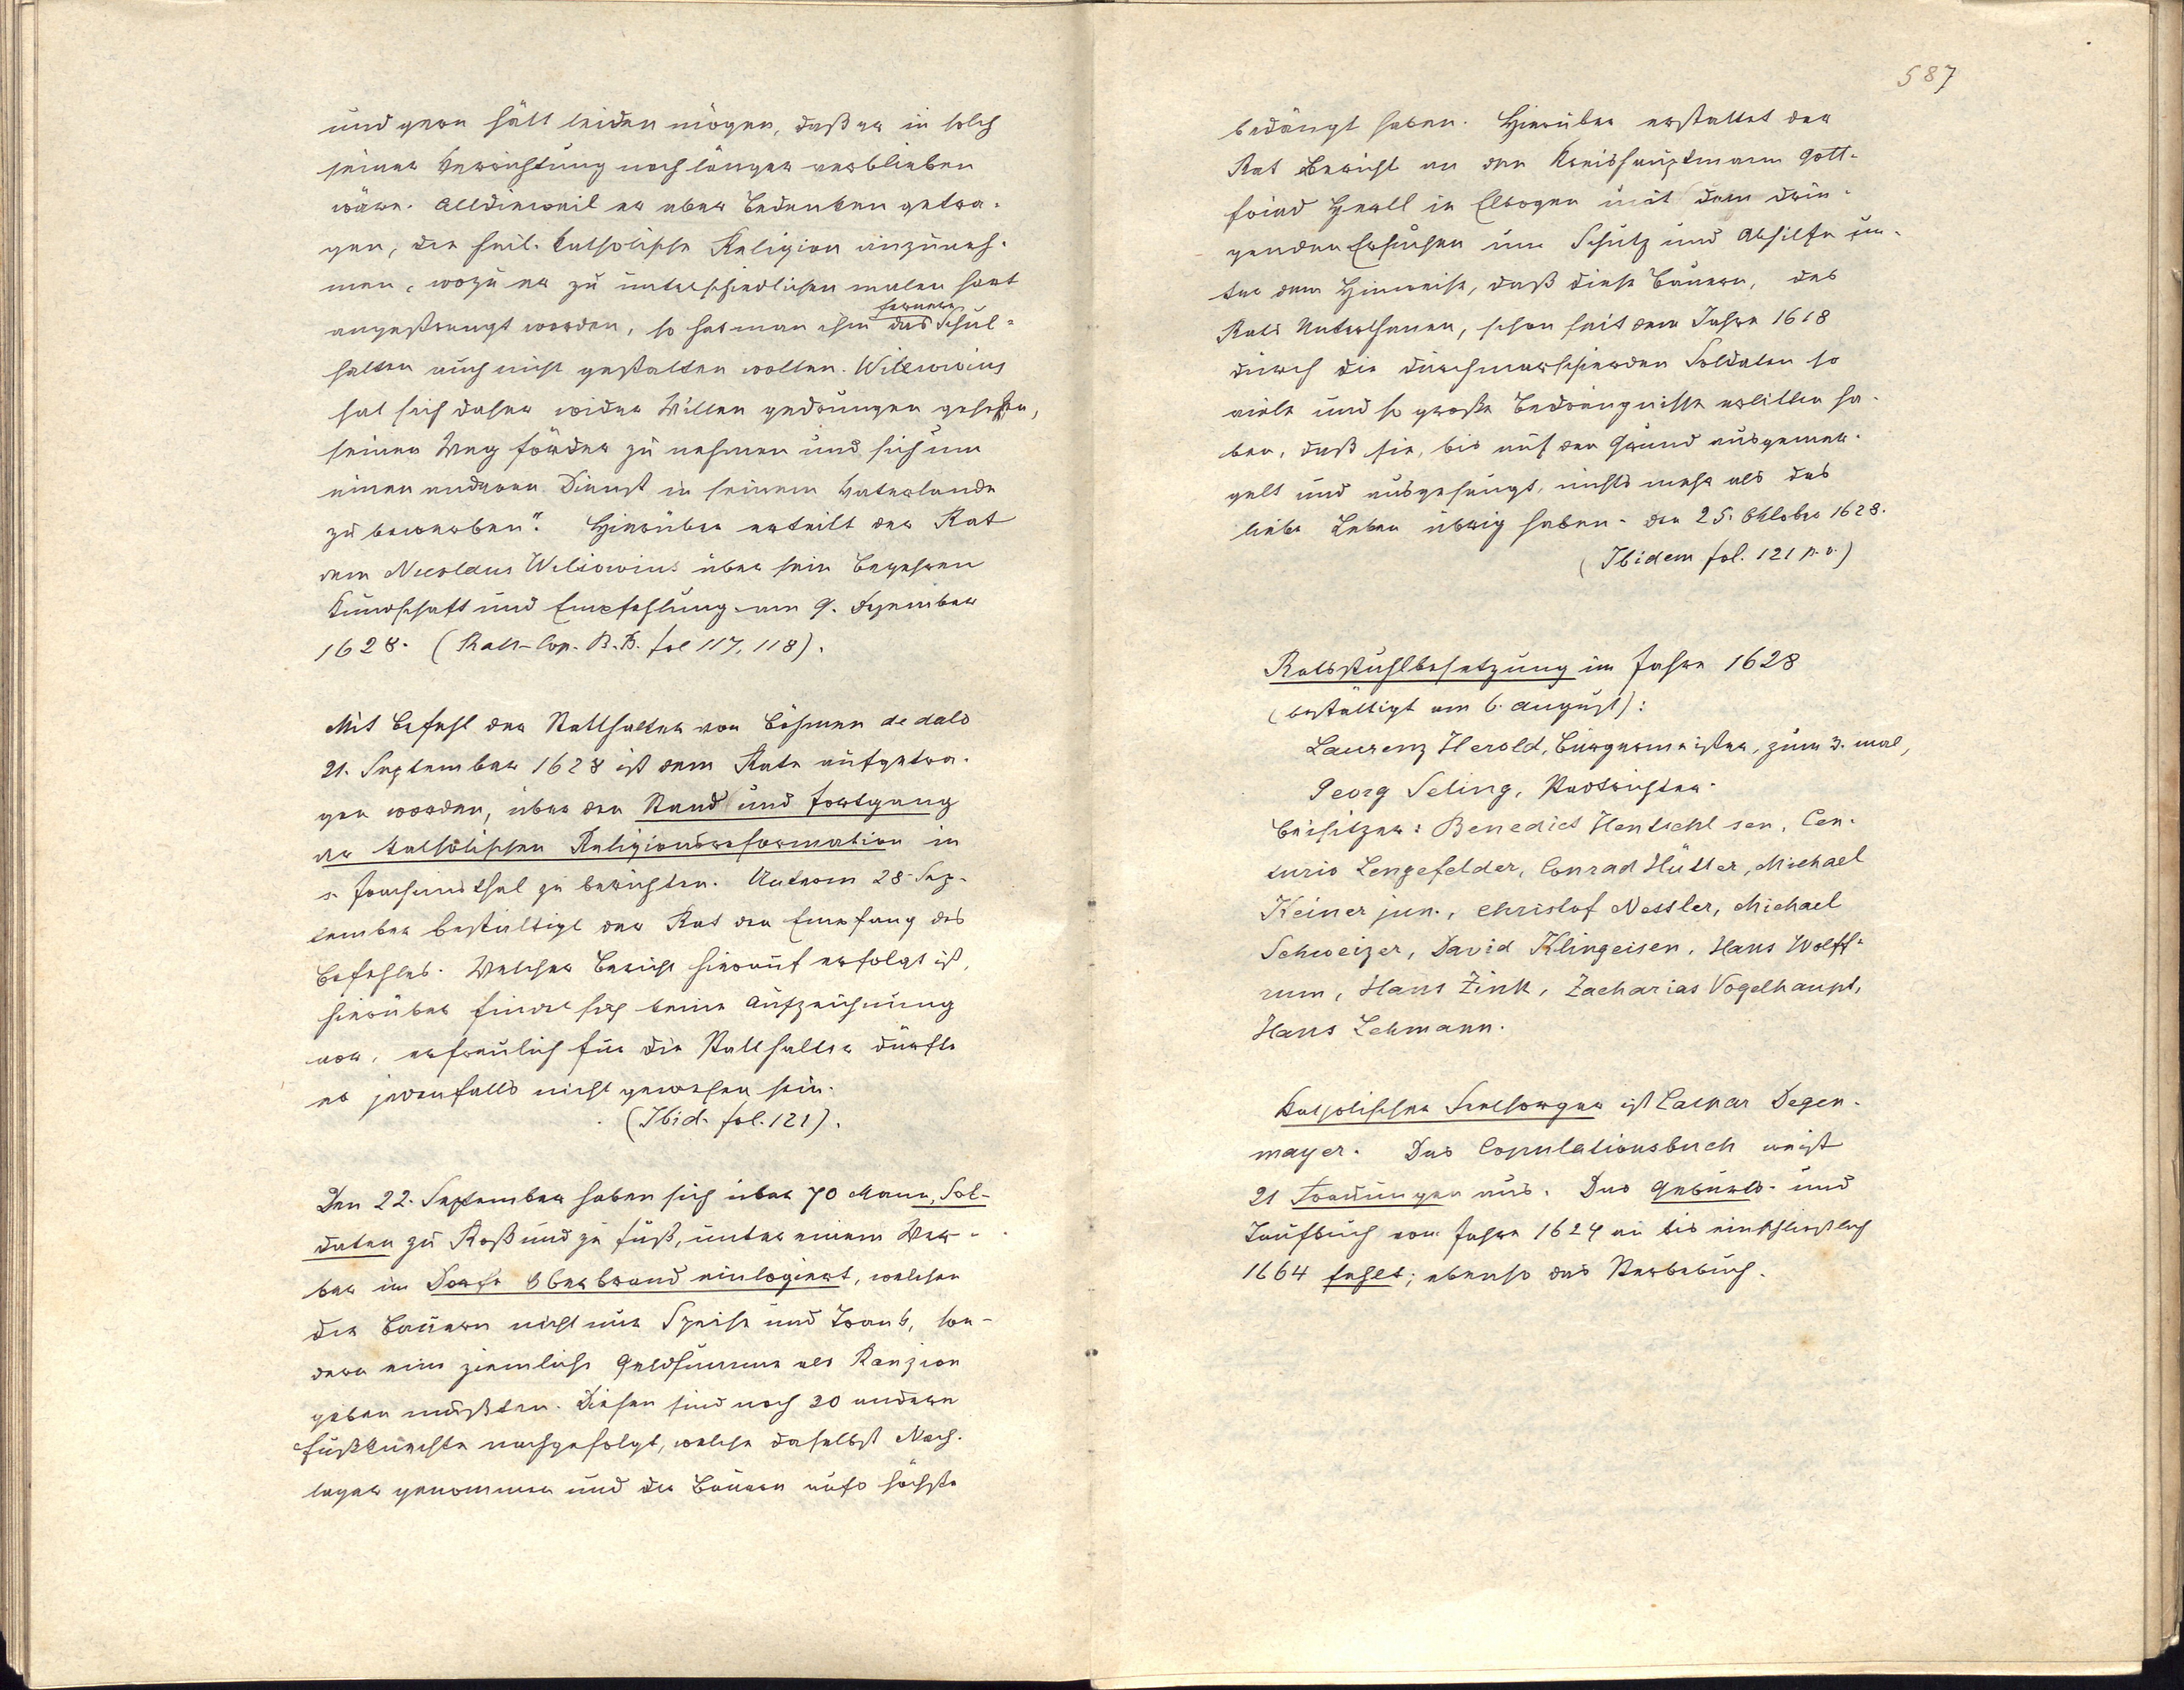 und gern hätt leiden mögen, daß er in solch
seiner Verrichtung noch länger verblieben
wäre. Alldieweil er aber Bedenken getra-
gen, die heil. katholische Religion anzuneh-
men, wozu er zu unterschiedlichen malen hart
angestrengt worden, so hat man ihm das fernere Schul-
halten auch nicht gestatten wollen. Wilkowius
hat sich daher wider Willen gedrungen gesehen,
seinen Weg förder zu nehmen und sich um
einen anderen Dienst in seinem Vaterlande
zu bewerben". Hierüber erteilt der Rat
dem Nicolaus Wiliowius über sein Begehren
Kundschaft und Empfehlung am 9. Dezember
1628. (Rats-Cop. B. B. fol 117, 118).
Mit Befehl der Statthalter von Böhmen de dato
21. September 1628 ist dem Rate aufgetra-
gen worden, über den Stand und Fortgang
der katholischen Religionsreformation in
s. Joachimsthal zu berichten. Unterm 28. Sep-
tember bestättigt der Rat den Empfang des
Befehles. Welcher Bericht hierauf erfolgt ist,
hierüber findet sich keine Aufzeichnung
vor, erfreulich für die Statthalter dürfte
es jedenfalls nicht gewesen sein.
(Ibid. fol. 121).
Den 22. September haben sich über 70 Mann, Sol-
daten zu Roß und zu Fuß, unter einem Wer-
ber im Dorfe Oberbrand einlogiert, welchen
die Bauern nicht nur Speise und Trank, son-
dern eine ziemliche Geldsumme als Ranzion
geben mußten. Diesen sind noch 30 andere
Fußknechte nachgefolgt, welche daselbst Nach-
lager genommen und die Bauern aufs höchste
587
bedängt haben. Hierüber erstattet der
Rat Bericht an den Kreishauptmann Gott-
fried Hertl in Elbogen mit dem drin-
genden Ersuchen um Schutz und Abhilfe un-
ter dem Hinweise, daß diese Bauern, des
Rats Unterthanen, schon seit dem Jahre 1618
durch die durchmarschierden Soldaten so
viele und so große Bedrängnisse erlitten ha-
ben, daß sie, bis auf den Grund ausgemer-
gelt und ausgesaugt, nichts mehr als das
liebe Leben übrig haben. Den 25. Oktober 1628.
(Ibidem fol. 121 p. v.)
Ratsstuhlbesetzung im Jahre 1628
(bestättigt am 6. August):
Laurenz Herold, Bürgermeister, zum 3. mal,
Georg Seling, Stadtrichter.
Beisitzer: Benedict Hentschl sen, Cen-
turio Lengefelder, Conrad Hütter, Michael
Keiner jun., Christof Nessler, Michael
Schweizer, David Klingeisen, Hans Wolff-
rum, Hans Zink, Zacharias Vogelhaupt,
Hans Lehmann.
Katholischer Seelsorger ist Caspar Degen-
mayer. Das Copulationsbuch weist
21 Trauungen aus. Das Geburts- und
Taufbuch vom Jahre 1624 an bis einschließlich
1664 fehlt; ebenso das Sterbebuch.